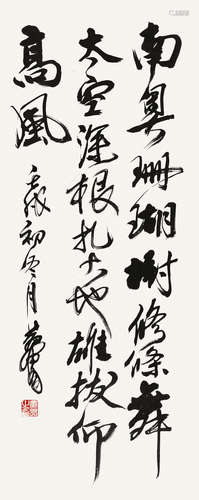 南粤珊瑚树修条舞
太空深根扎大地雄拔仰
高风
壬戌初冬月